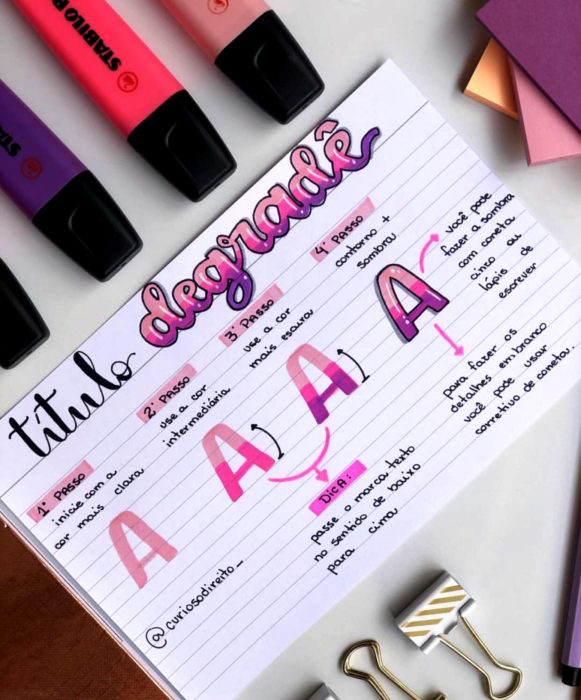 STABILO B
STA
título degradê
1° PASSO
inicie com a
cor mais clara
A
2° PASSO
use a cor
intermediária
A
3° PASSO
use a cor
mais escura
A
4° PASSO
contorno +
sombra
A
você pode
fazer a sombra
com caneta
cinza ou
lápis de
escrever
para fazer os
detalhes em branco
você pode usar
corretivo de caneta.
DICA:
passe o marca texto
no sentido de baixo
para cima
@curiosodireito_